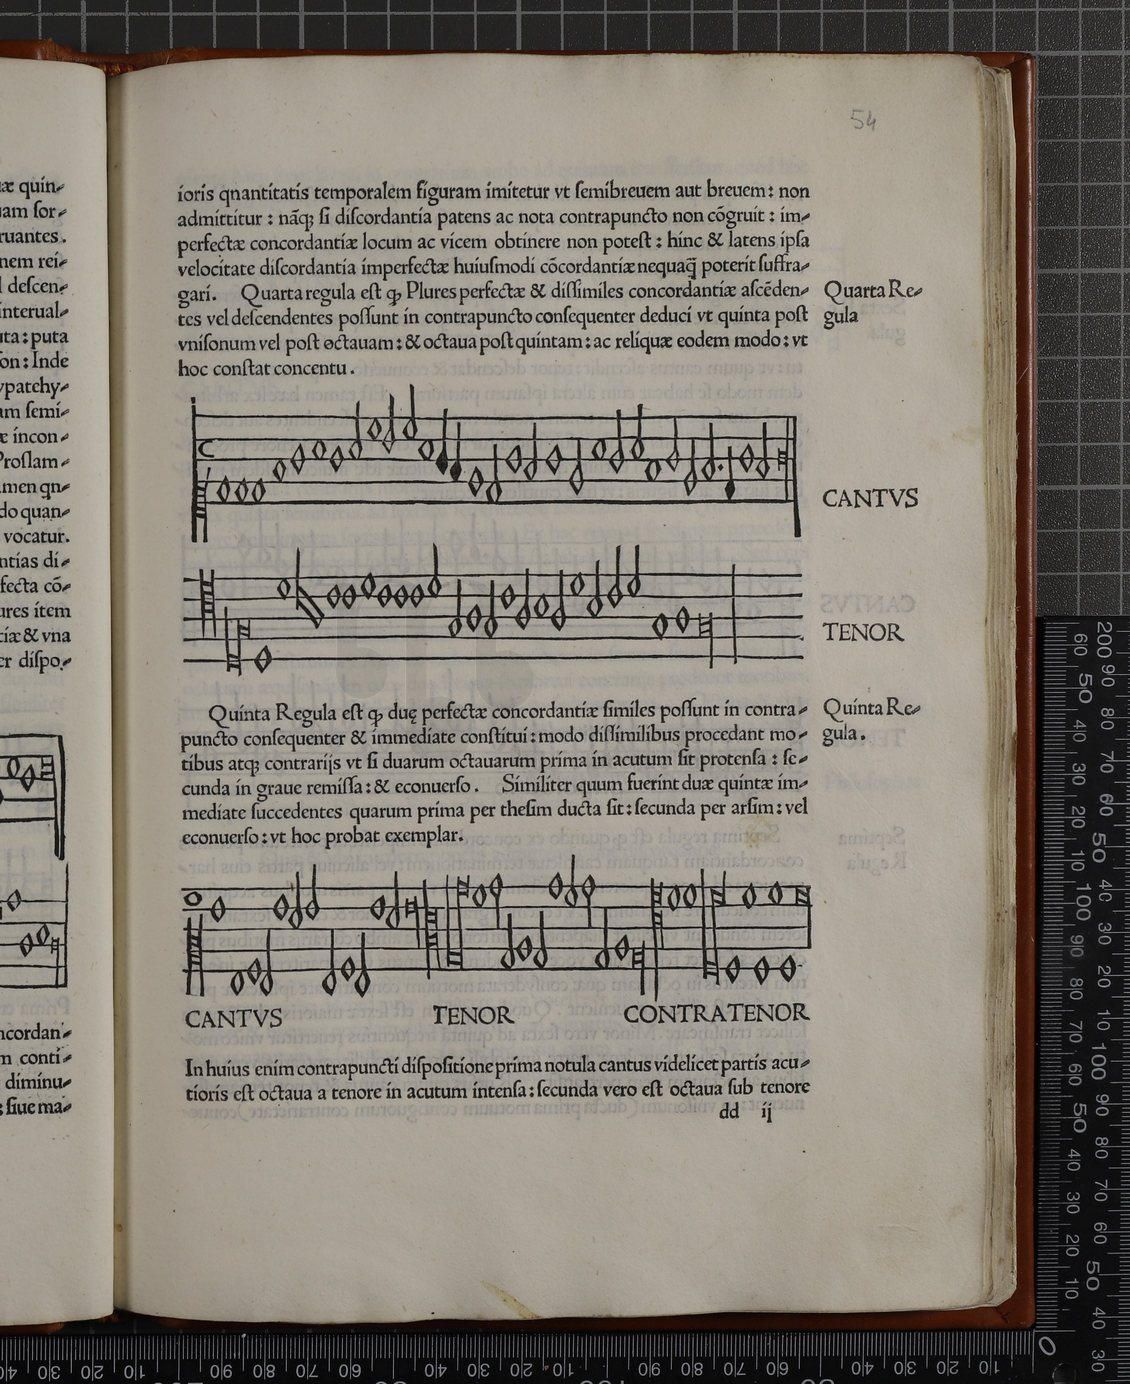 54
ioris qnantitatis temporalem figuram imitetur vt semibreuem aut breuem: non
admittitur: nāqꝫ si discordantia patens ac nota contrapuncto non cōgruit: im-
perfectæ concordantiæ locum ac vicem obtinere non potest: hinc & latens ipsa
velocitate discordantia imperfectæ huiusmodi cōcordantiæ nequaq̄ poterit suffra-
gari. Quarta regula est ꝙ Plures perfectæ & dissimiles concordantiæ ascēden-
tes vel descendentes possunt in contrapuncto consequenter deduci vt quinta post
vnisonum vel post octauam: & octaua post quintam: ac reliquæ eodem modo: vt
hoc constat concentu.
Quarta Re-
gula
CANTVS
TENOR
Quinta Regula est ꝙ duę perfectæ concordantiæ similes possunt in contra-
puncto consequenter & immediate constitui: modo dissimilibus procedant mo-
tibus atqꝫ contrarijs vt si duarum octauarum prima in acutum sit protensa: se-
cunda in graue remissa: & econuerso. Similiter quum fuerint duæ quintæ im-
mediate succedentes quarum prima per thesim ducta sit: secunda per arsim: vel
econuerso: vt hoc probat exemplar.
Quinta Re-
gula.
CANTVS TENOR CONTRATENOR
In huius enim contrapuncti dispositione prima notula cantus videlicet partis acu-
tioris est octaua a tenore in acutum intensa: secunda vero est octaua sub tenore
dd ij